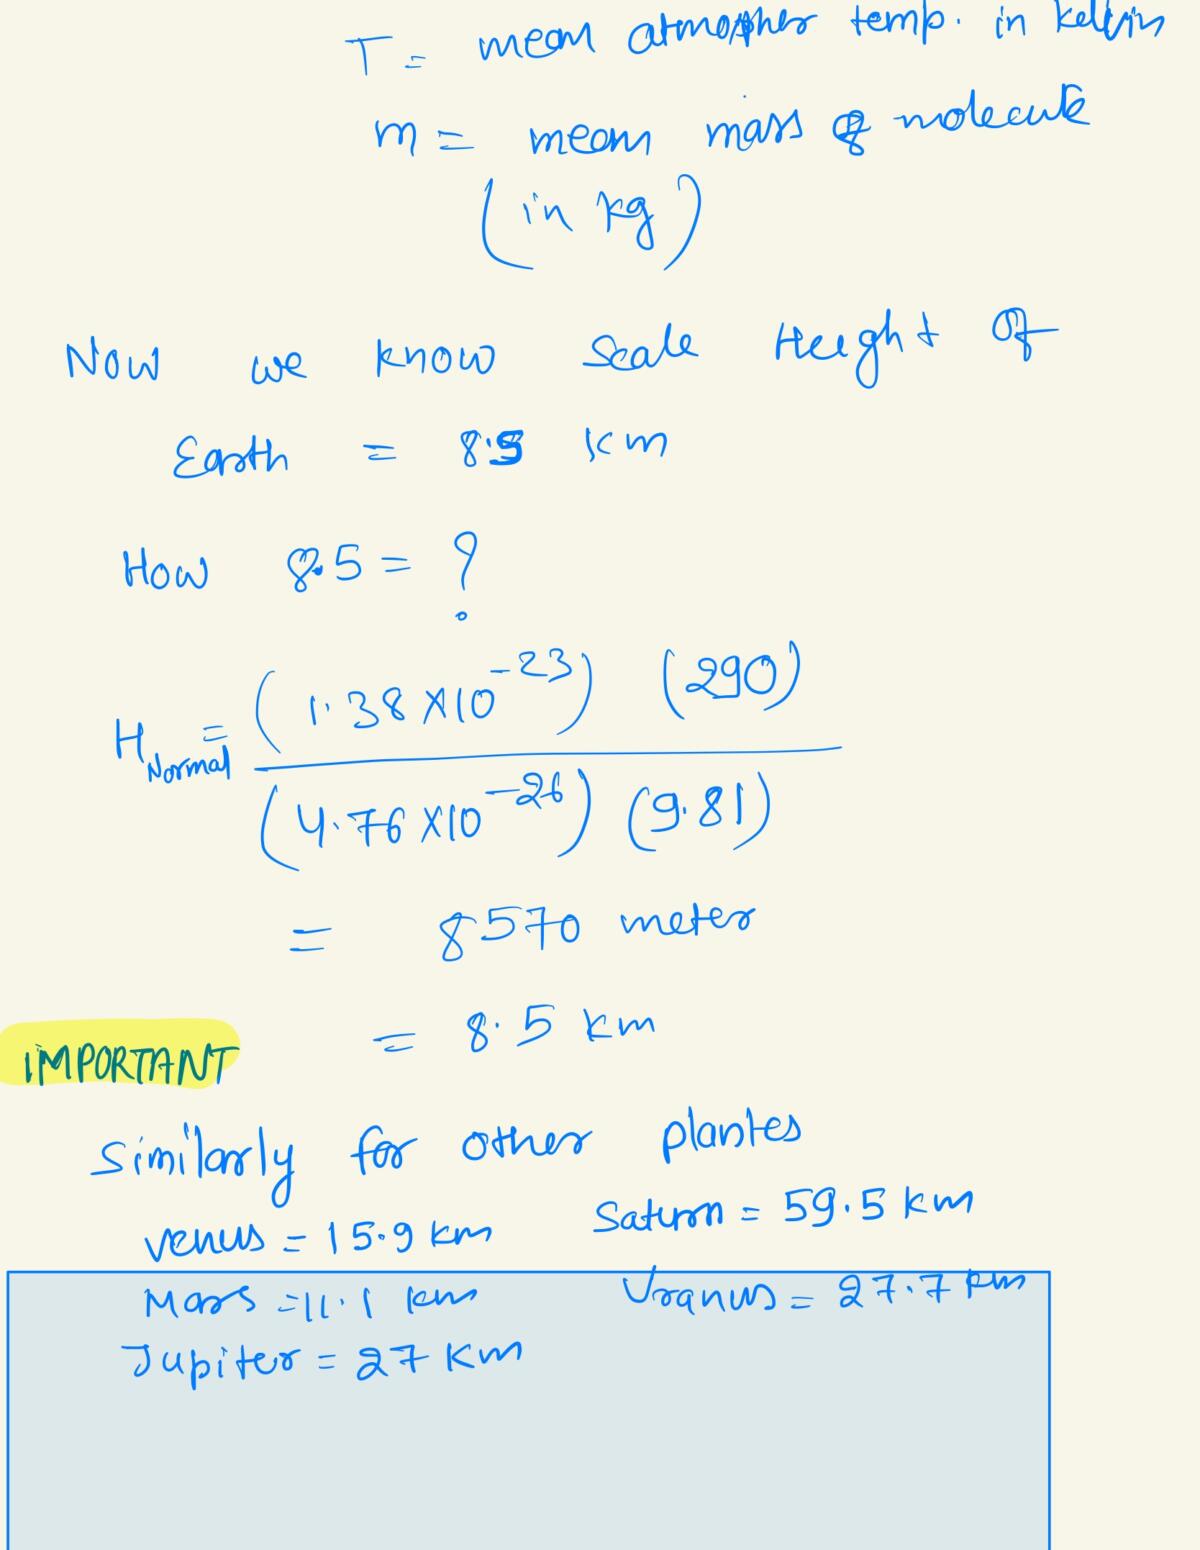 T = mean atmospher temp. in kelvin
m = mean mass of molecule
(in kg)
Now we know Scale Height of
Earth = 8.5 km
How 8.5 = ?
H Normal = (1.38 × 10^-23) (290)
(4.76 × 10^-26) (9.81)
= 8570 meter
= 8.5 km
IMPORTANT
Similarly for other plantes
Venus = 15.9 km Saturn = 59.5 km
Mars = 11.1 km Uranus = 27.7 km
Jupiter = 27 km